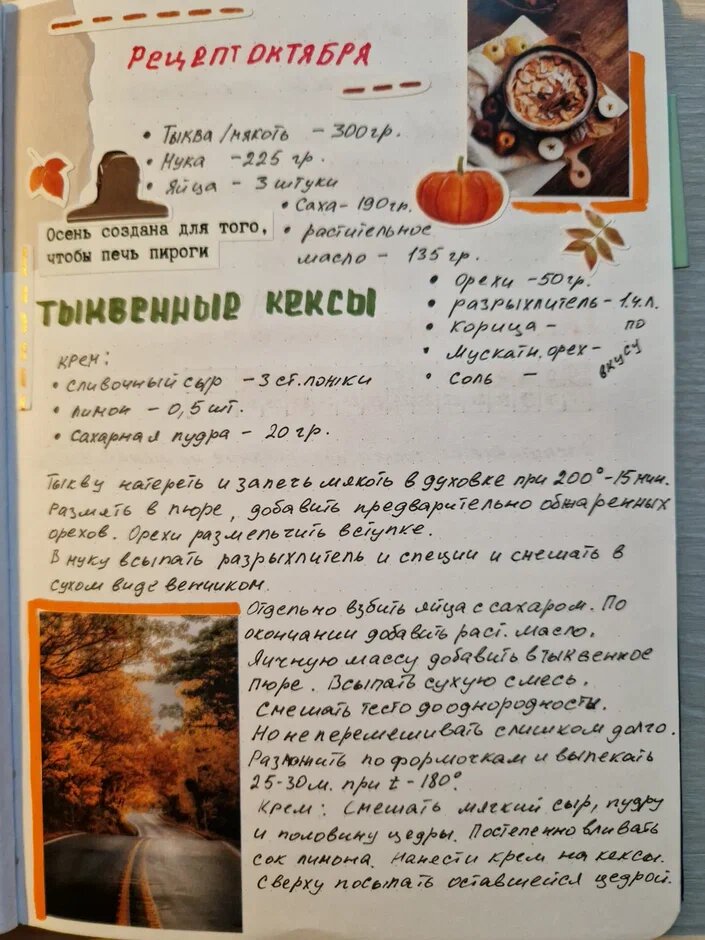 РЕЦЕПТ ОКТЯБРЯ
• Тыква /мякоть – 300гр.
• Мука – 225 гр.
• Яйца – 3 штуки
• Саха – 190гр.
• растительное
масло – 135 гр.
• Орехи – 50гр.
• разрыхлитель – 1 ч.л.
• корица –
• Мускатн. орех –
• соль –
по вкусу
Осень создана для того,
чтобы печь пироги
ТЫКВЕННЫЕ КЕКСЫ
Крем:
• сливочный сыр – 3 ст.ложки
• лимон – 0,5 шт.
• Сахарная пудра – 20 гр.
Тыкву натереть и запечь мякоть в духовке при 200° – 15 мин.
Размять в пюре, добавить предварительно обжаренных
орехов. Орехи размельчить в ступке.
В муку всыпать разрыхлитель и специи и смешать в
сухом виде венчиком.
Отдельно взбить яйца с сахаром. По
окончании добавить раст. масло.
Яичную массу добавить в тыквенное
пюре. Всыпать сухую смесь.
Смешать тесто до однородности.
Но не перемешивать слишком долго.
Разложить по формочкам и выпекать
25-30 м. при t – 180°
Крем: Смешать мягкий сыр, пудру
и половину цедры. Постепенно вливать
сок лимона. Нанести крем на кексы.
Сверху посыпать оставшейся цедрой.